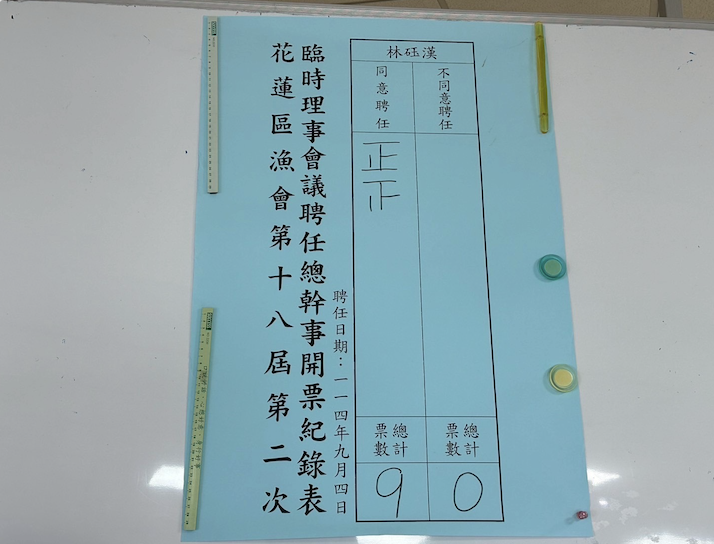 花蓮區漁會第十八屆第二次
臨時理事會議聘任總幹事開票紀錄表
聘任日期：一一四年九月四日
林砡漢
同意聘任
不同意聘任
正
正
總計
票數
總計
票數
9
0